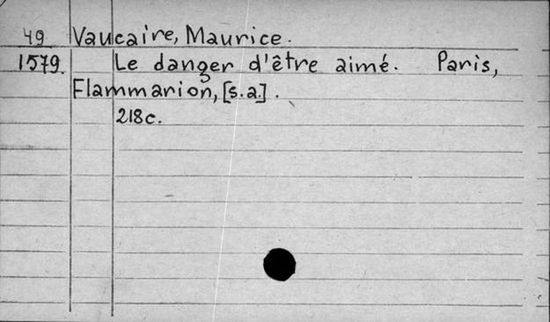 49 Vaucaire, Maurice.
1579. Le danger d'être aimé. Paris,
Flammarion, [s.a.].
218c.